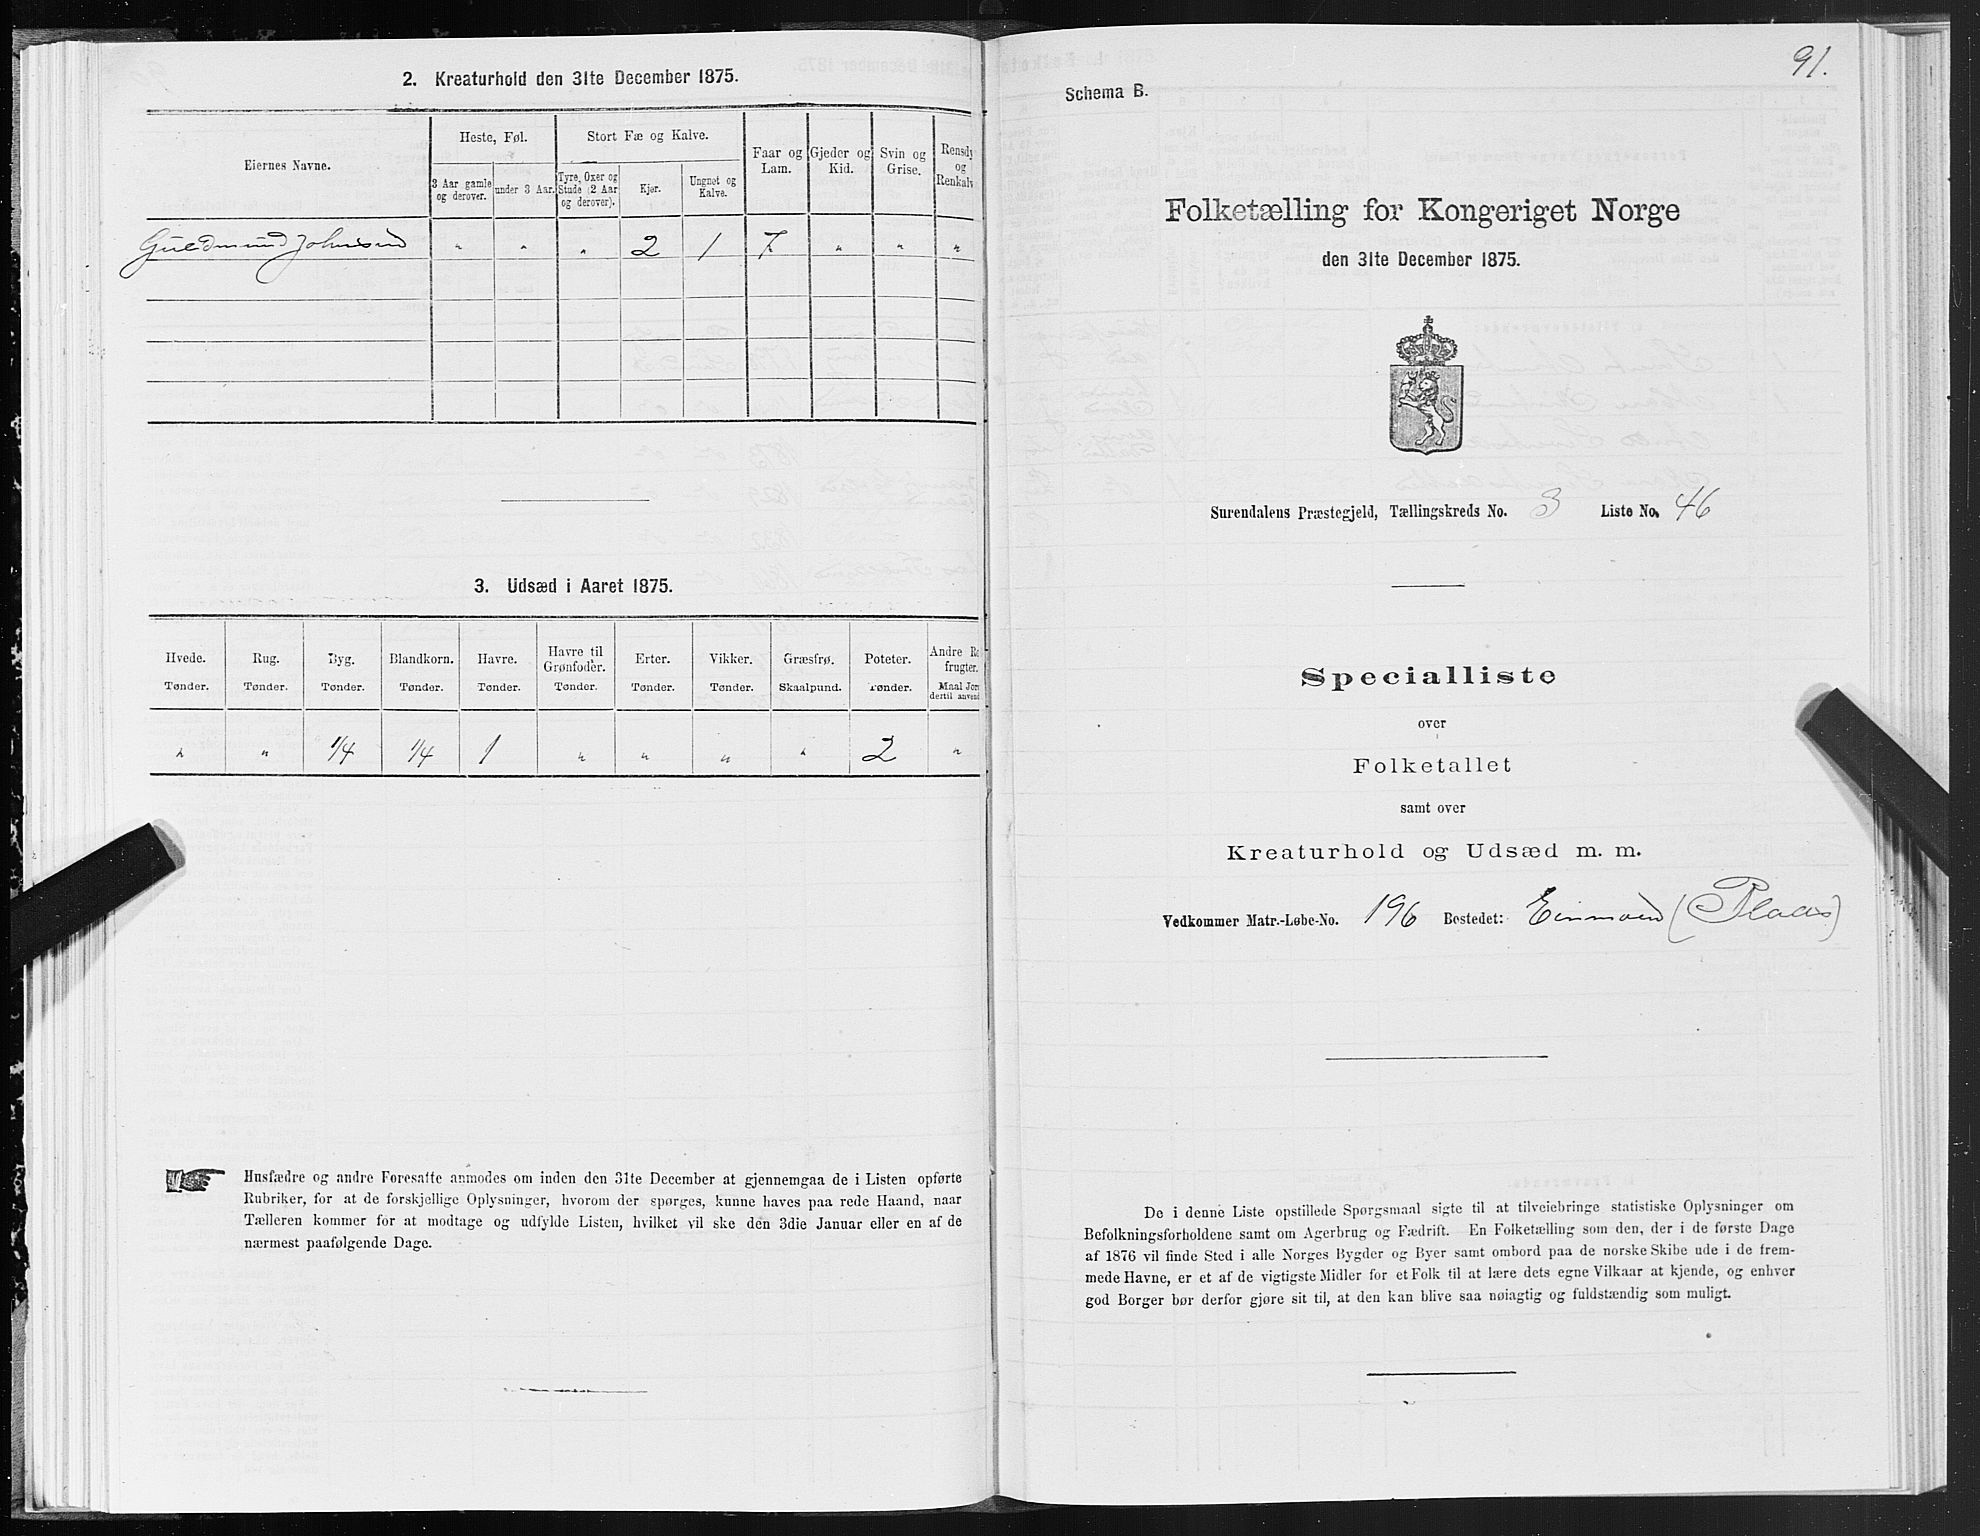 2. Kreaturhold den 31te December 1875.
Eiernes Navne.
Heste, Føl.
Stort Fæ og Kalve.
Faar og Lam.
Gjeder og Kid.
Svin og Grise.
Rensdy og Renkalv
3 Aar gamle og derover.
under 3 Aar.
Tyre, Oxer og Stude (2 Aar og derover).
Kjør.
Ungnøt og Kalve.
Guldmund Johnsen " " " 2 1 7 " " "
3. Udsæd i Aaret 1875.
Hvede. Rug. Byg. Blandkorn. Havre. Havre til Grønfoder. Erter. Vikker. Græsfrø. Poteter. Andre Ro frugter.
Tønder. Tønder. Tønder. Tønder. Tønder. Tønder. Tønder. Tønder. Skaalpund. Tønder. Maal Jor dertil anvend
" " 1/4 1/4 1 " " " " 2 "
Husfædre og andre Foresatte anmodes om inden den 31te December at gjennemgaa de i Listen opførte
Rubriker, for at de forskjellige Oplysninger, hvorom der spørges, kunne haves paa rede Haand, naar
Tælleren kommer for at modtage og udfylde Listen, hvilket vil ske den 3die Januar eller en af de
nærmest paafølgende Dage.
91.
Schema B.
Folketælling for Kongeriget Norge
den 31te December 1875.
Surendalens Præstegjeld, Tællingskreds No. 3 Liste No. 46
Specialliste
over
Folketallet
samt over
Kreaturhold og Udsæd m. m.
Vedkommer Matr.-Løbe-No. 196 Bostedet: Einmoen (Plads)
De i denne Liste opstillede Spørgsmaal sigte til at tilveiebringe statistiske Oplysninger om
Befolkningsforholdene samt om Agerbrug og Fædrift. En Folketælling som den, der i de første Dage
af 1876 vil finde Sted i alle Norges Bygder og Byer samt ombord paa de norske Skibe ude i de frem-
mede Havne, er et af de vigtigste Midler for et Folk til at lære dets egne Vilkaar at kjende, og enhver
god Borger bør derfor gjøre sit til, at den kan blive saa nøiagtig og fuldstændig som muligt.